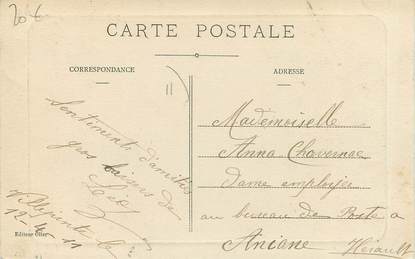 20 €
CARTE POSTALE
CORRESPONDANCE
ADRESSE
Sentiments d'amitiés
gros baisers de
Villepinte le
12-4-11
Editeur
Mademoiselle
Anna Chavernac
dame employée
au bureau de Poste a
Aniane Hérault